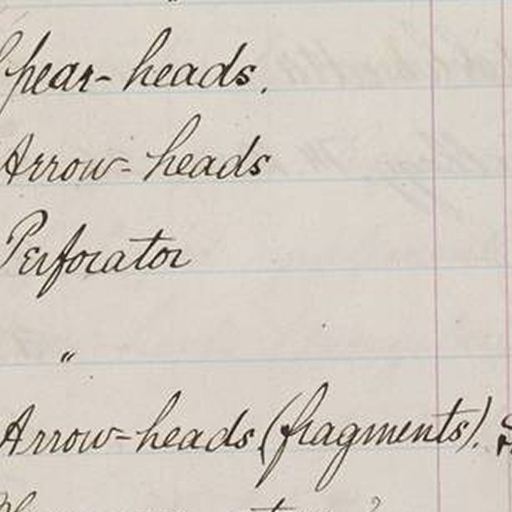 Spear-heads.
Arrow-heads
Perforator
"
Arrow-heads (fragments).